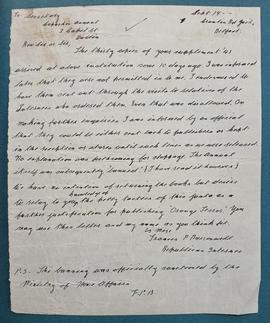 To Secretary Sept 14.
Capuchin Annual Crumlin Rd Gaol,
2 Capel St. Belfast.
Dublin
Rev Sir or Sir
The thirty copies of your supplement
arrived at above institution some 10 days ago. I was informed
later that they were not permitted in to me. I endeavoured to
have them sent out through the visits to relatives of the
Internees who ordered them. Even that was disallowed. On
making further inquiries, I am informed by an official
that they could be either sent back to publishers or kept
in the reception or stores until such time as we were released.
No explanation was forthcoming for stoppage. The Annual
itself was subsequently "banned". (I have read it however.)
We have no intention of returning the books but desire
to relay to you knowledge of the petty tactics of this junta as a
further justification for publishing "Orange Terror". You
may use this letter and my name as you think fit.
Is Mise
Francis P.
Republican Internee
P.S. The banning was officially sanctioned by the
Ministry of Home Affairs
F.P.B.